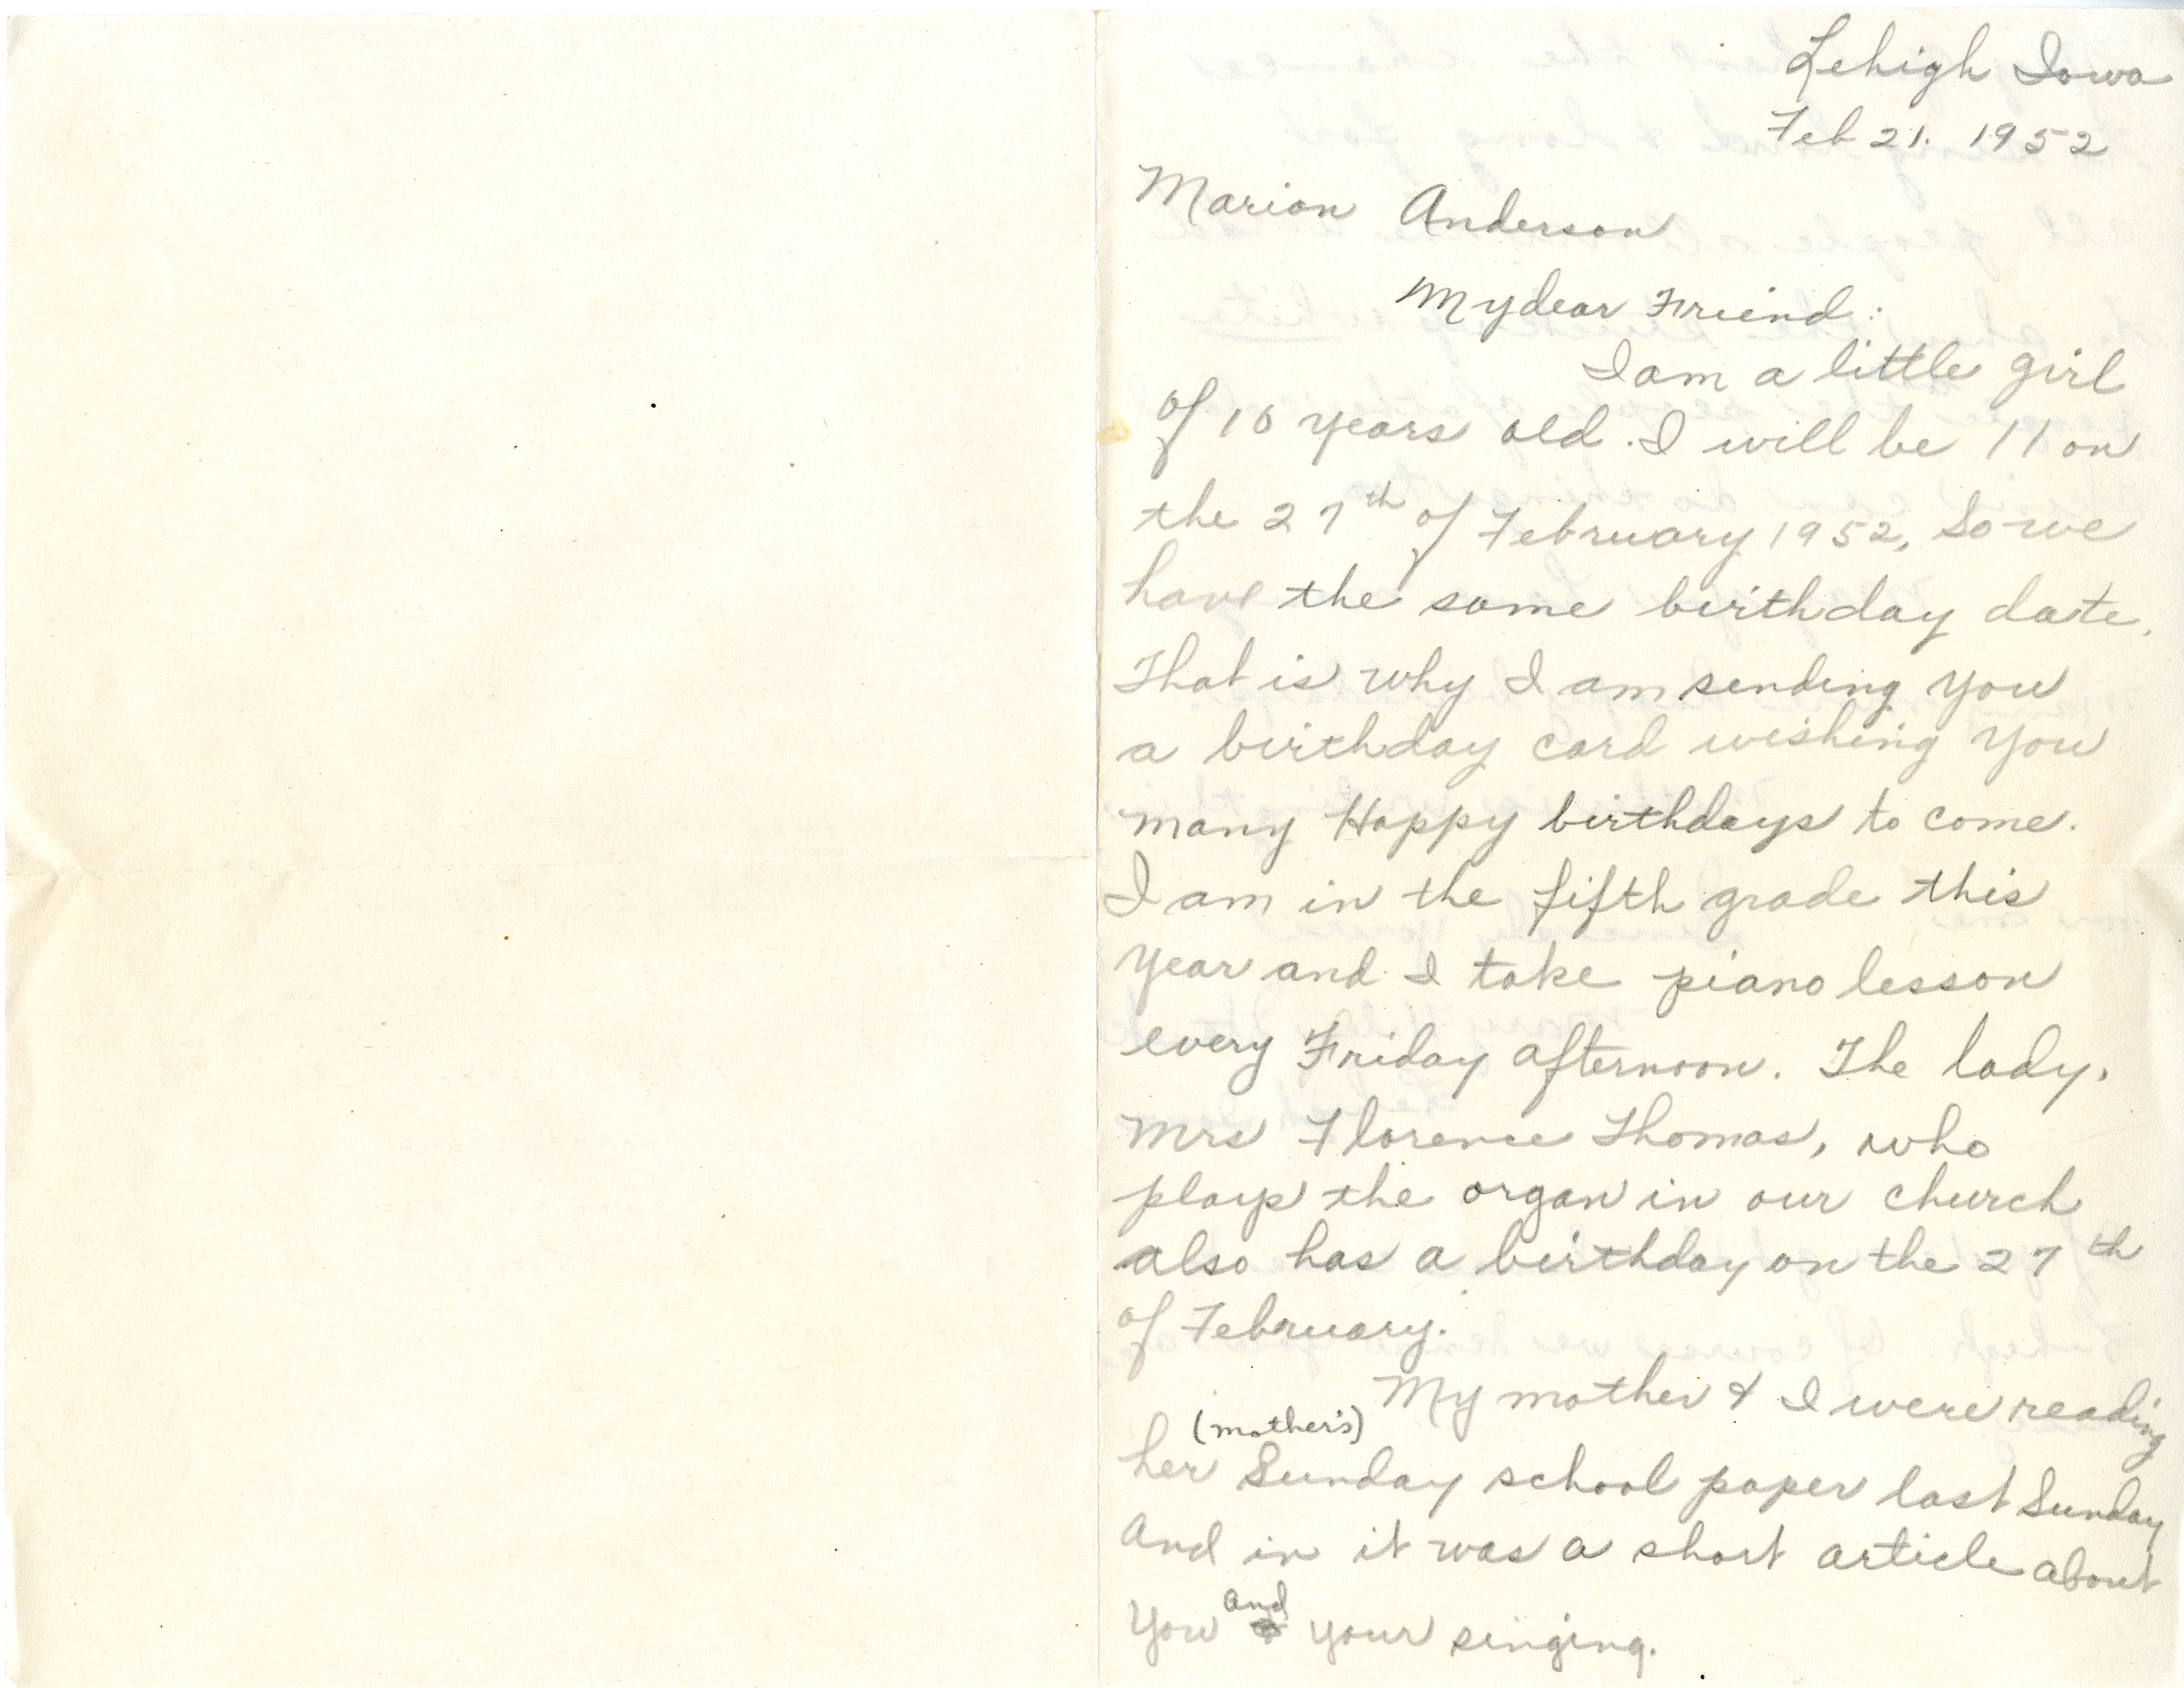 Lehigh Iowa
Feb 21. 1952
Marian Anderson
My dear Friend:
I am a little girl
of 10 years old. I will be 11 on
the 27th of February 1952, So we
have the same birthday date.
That is why I am sending you
a birthday card wishing you
many Happy birthdays to come.
I am in the fifth grade this
year and I take piano lesson
every Friday afternoon. The lady,
Mrs Florence Thomas, who
plays the organ in our church
also has a birthday on the 27th
of February.
My mother & I were reading
(mother's)
her Sunday school paper last Sunday
And in it was a short article about
you and your singing.